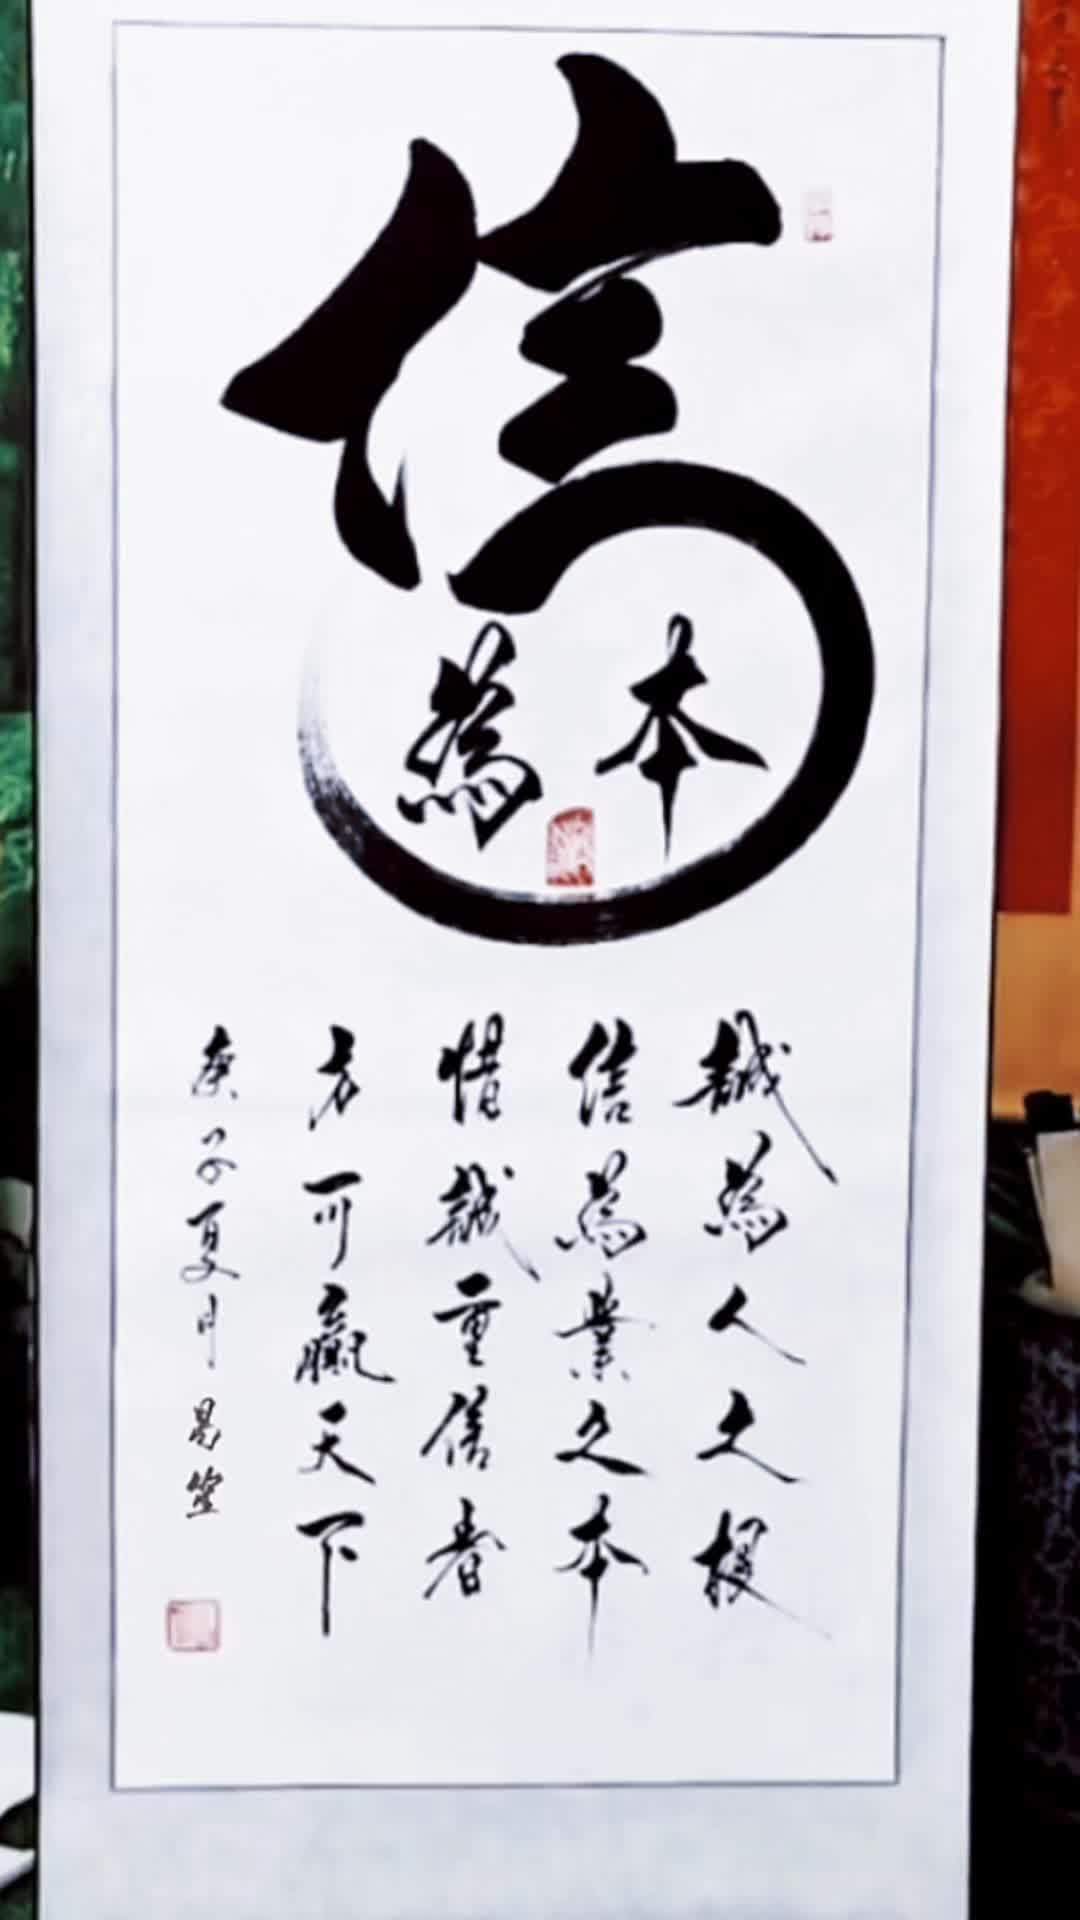 信
為本
誠為人之根
信為業之本
惜誠重信者
方可贏天下
庚子夏月